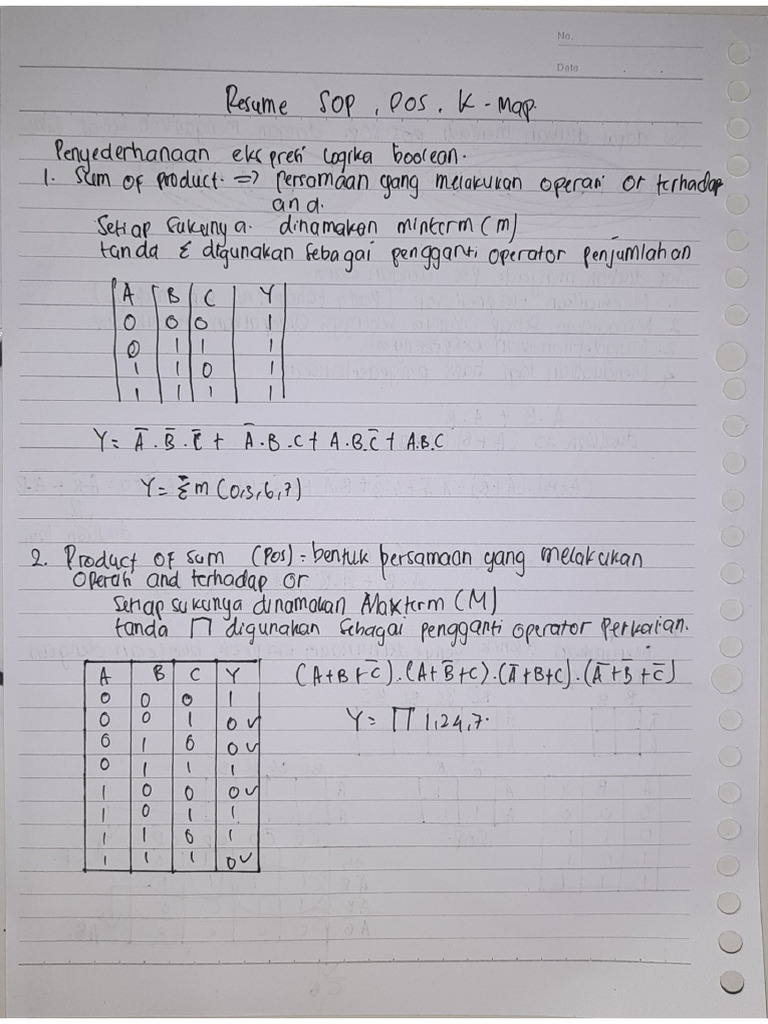 No.
Date
Resume SOP, POS, K-Map.
Penyederhanaan ekspresi logika boolean.
1. Sum of product. => persamaan yang melakukan operasi or terhadap
and.
Setiap sukunya. dinamakan minterm (m)
tanda Σ digunakan sebagai pengganti operator penjumlahan
A B C Y
0 0 0 1
0 1 1 1
1 1 0 1
1 1 1 1
Y = A̅.B̅.C̅ + A̅.B.C + A.B.C̅ + A.B.C
Y = Σm (0,3,6,7)
2. Product of sum (POS) = bentuk persamaan yang melakukan
operasi and terhadap or
Setiap sukunya dinamakan Maxterm (M)
tanda ∏ digunakan sebagai pengganti operator perkalian.
A B C Y
0 0 0 1
0 0 1 0 ✓
0 1 0 0 ✓
0 1 1 1
1 0 0 0 ✓
1 0 1 1
1 1 0 1
1 1 1 0 ✓
(A+B+C̅).(A+B̅+C).(A̅+B+C).(A̅+B̅+C̅)
Y = ∏ 1,24,7.